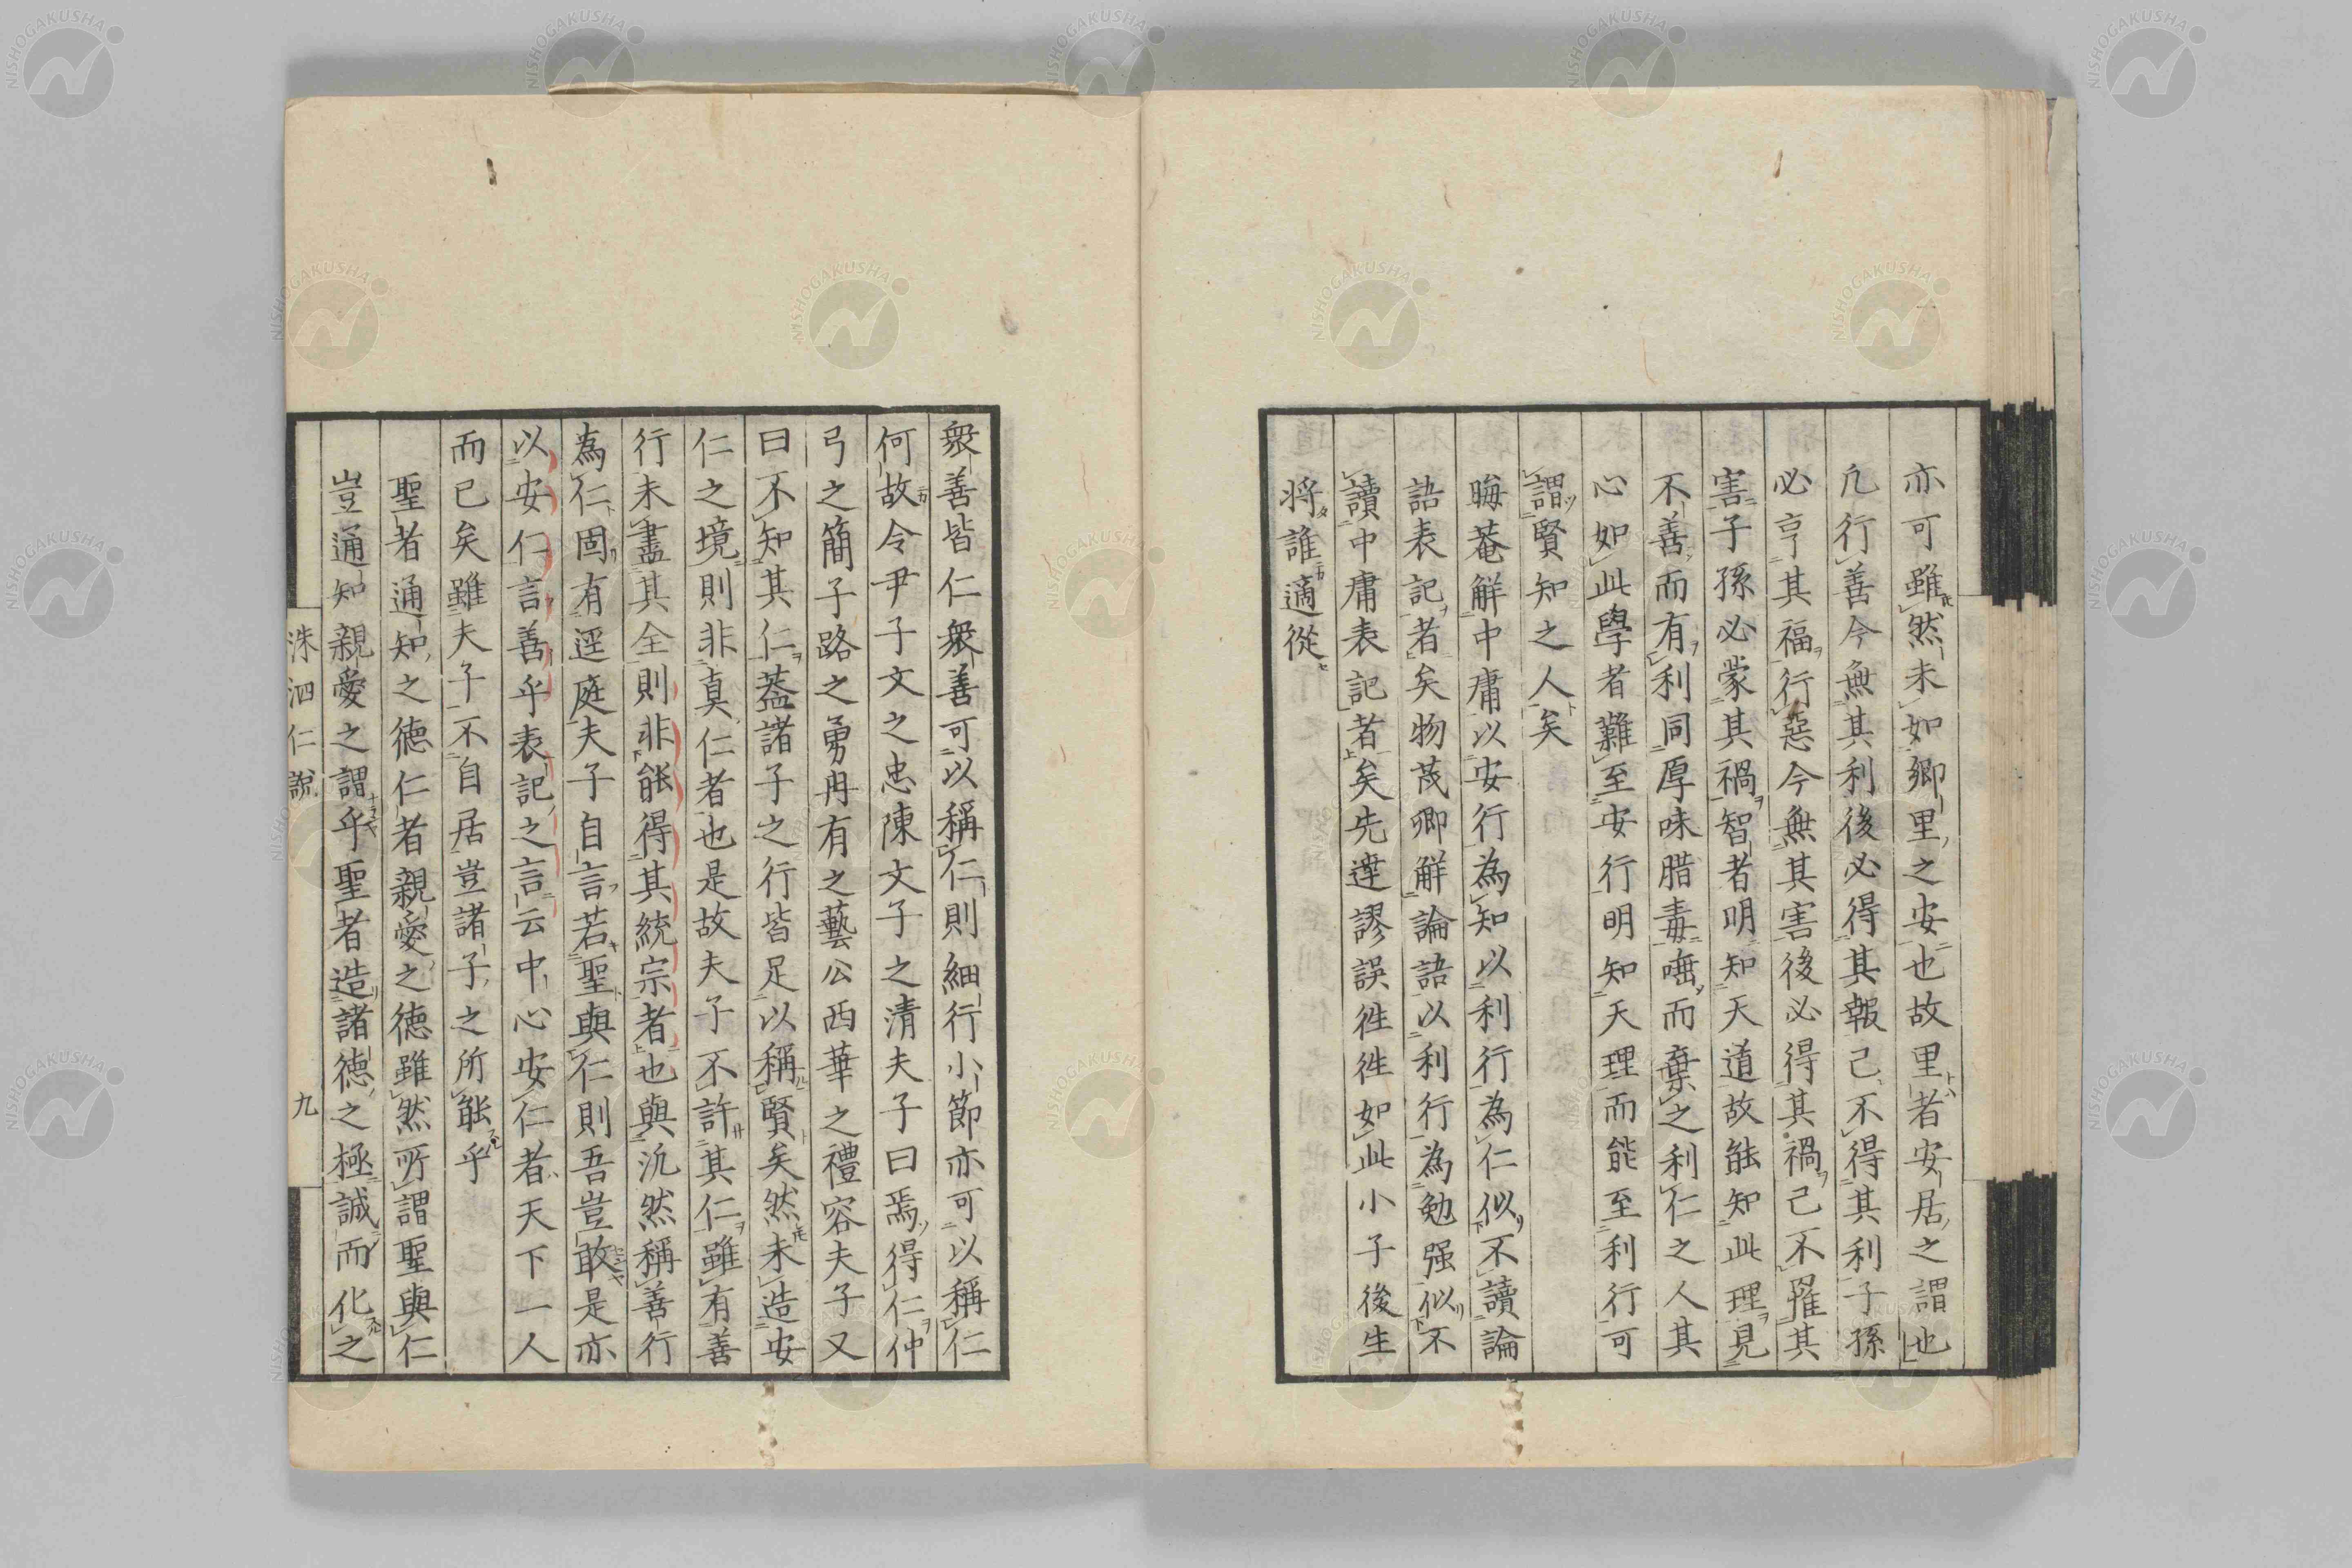 亦可雖然未如鄉里之安也故里者安居之謂也
凢行善今無其利後必得其報己不得其利子孫
必亨其福行惡今無其害後必得其禍己不罹其
害子孫必蒙其禍智者明知天道故能知此理見
不善而有利同厚味腊毒唾而棄之利仁之人其
心如此學者難至安行明知天理而能至利行可
謂賢知之人矣
晦菴解中庸以安行為知以利行為仁似不讀論
語表記者矣物茂卿解論語以利行為勉强似不
讀中庸表記者矣先達謬誤徃徃如此小子後生
将誰適從
衆善皆仁衆善可以稱仁則細行小節亦可以稱仁
何故令尹子文之忠陳文子之清夫子曰焉得仁仲
弓之簡子路之勇冉有之藝公西華之禮容夫子又
曰不知其仁葢諸子之行皆足以稱賢矣然未造安
仁之境則非真仁者也是故夫子不許其仁雖有善
行未盡其全則非能得其統宗者也與汎然稱善行
為仁固有逕庭夫子自言若聖與仁則吾豈敢是亦
以安仁言善乎表記之言云中心安仁者天下一人
而已矣雖夫子不自居豈諸子之所能乎
聖者通知之德仁者親愛之德雖然所謂聖與仁
豈通知親愛之謂乎聖者造諸德之極誠而化之
洙泗仁說 九
NISHOGAKUSHA